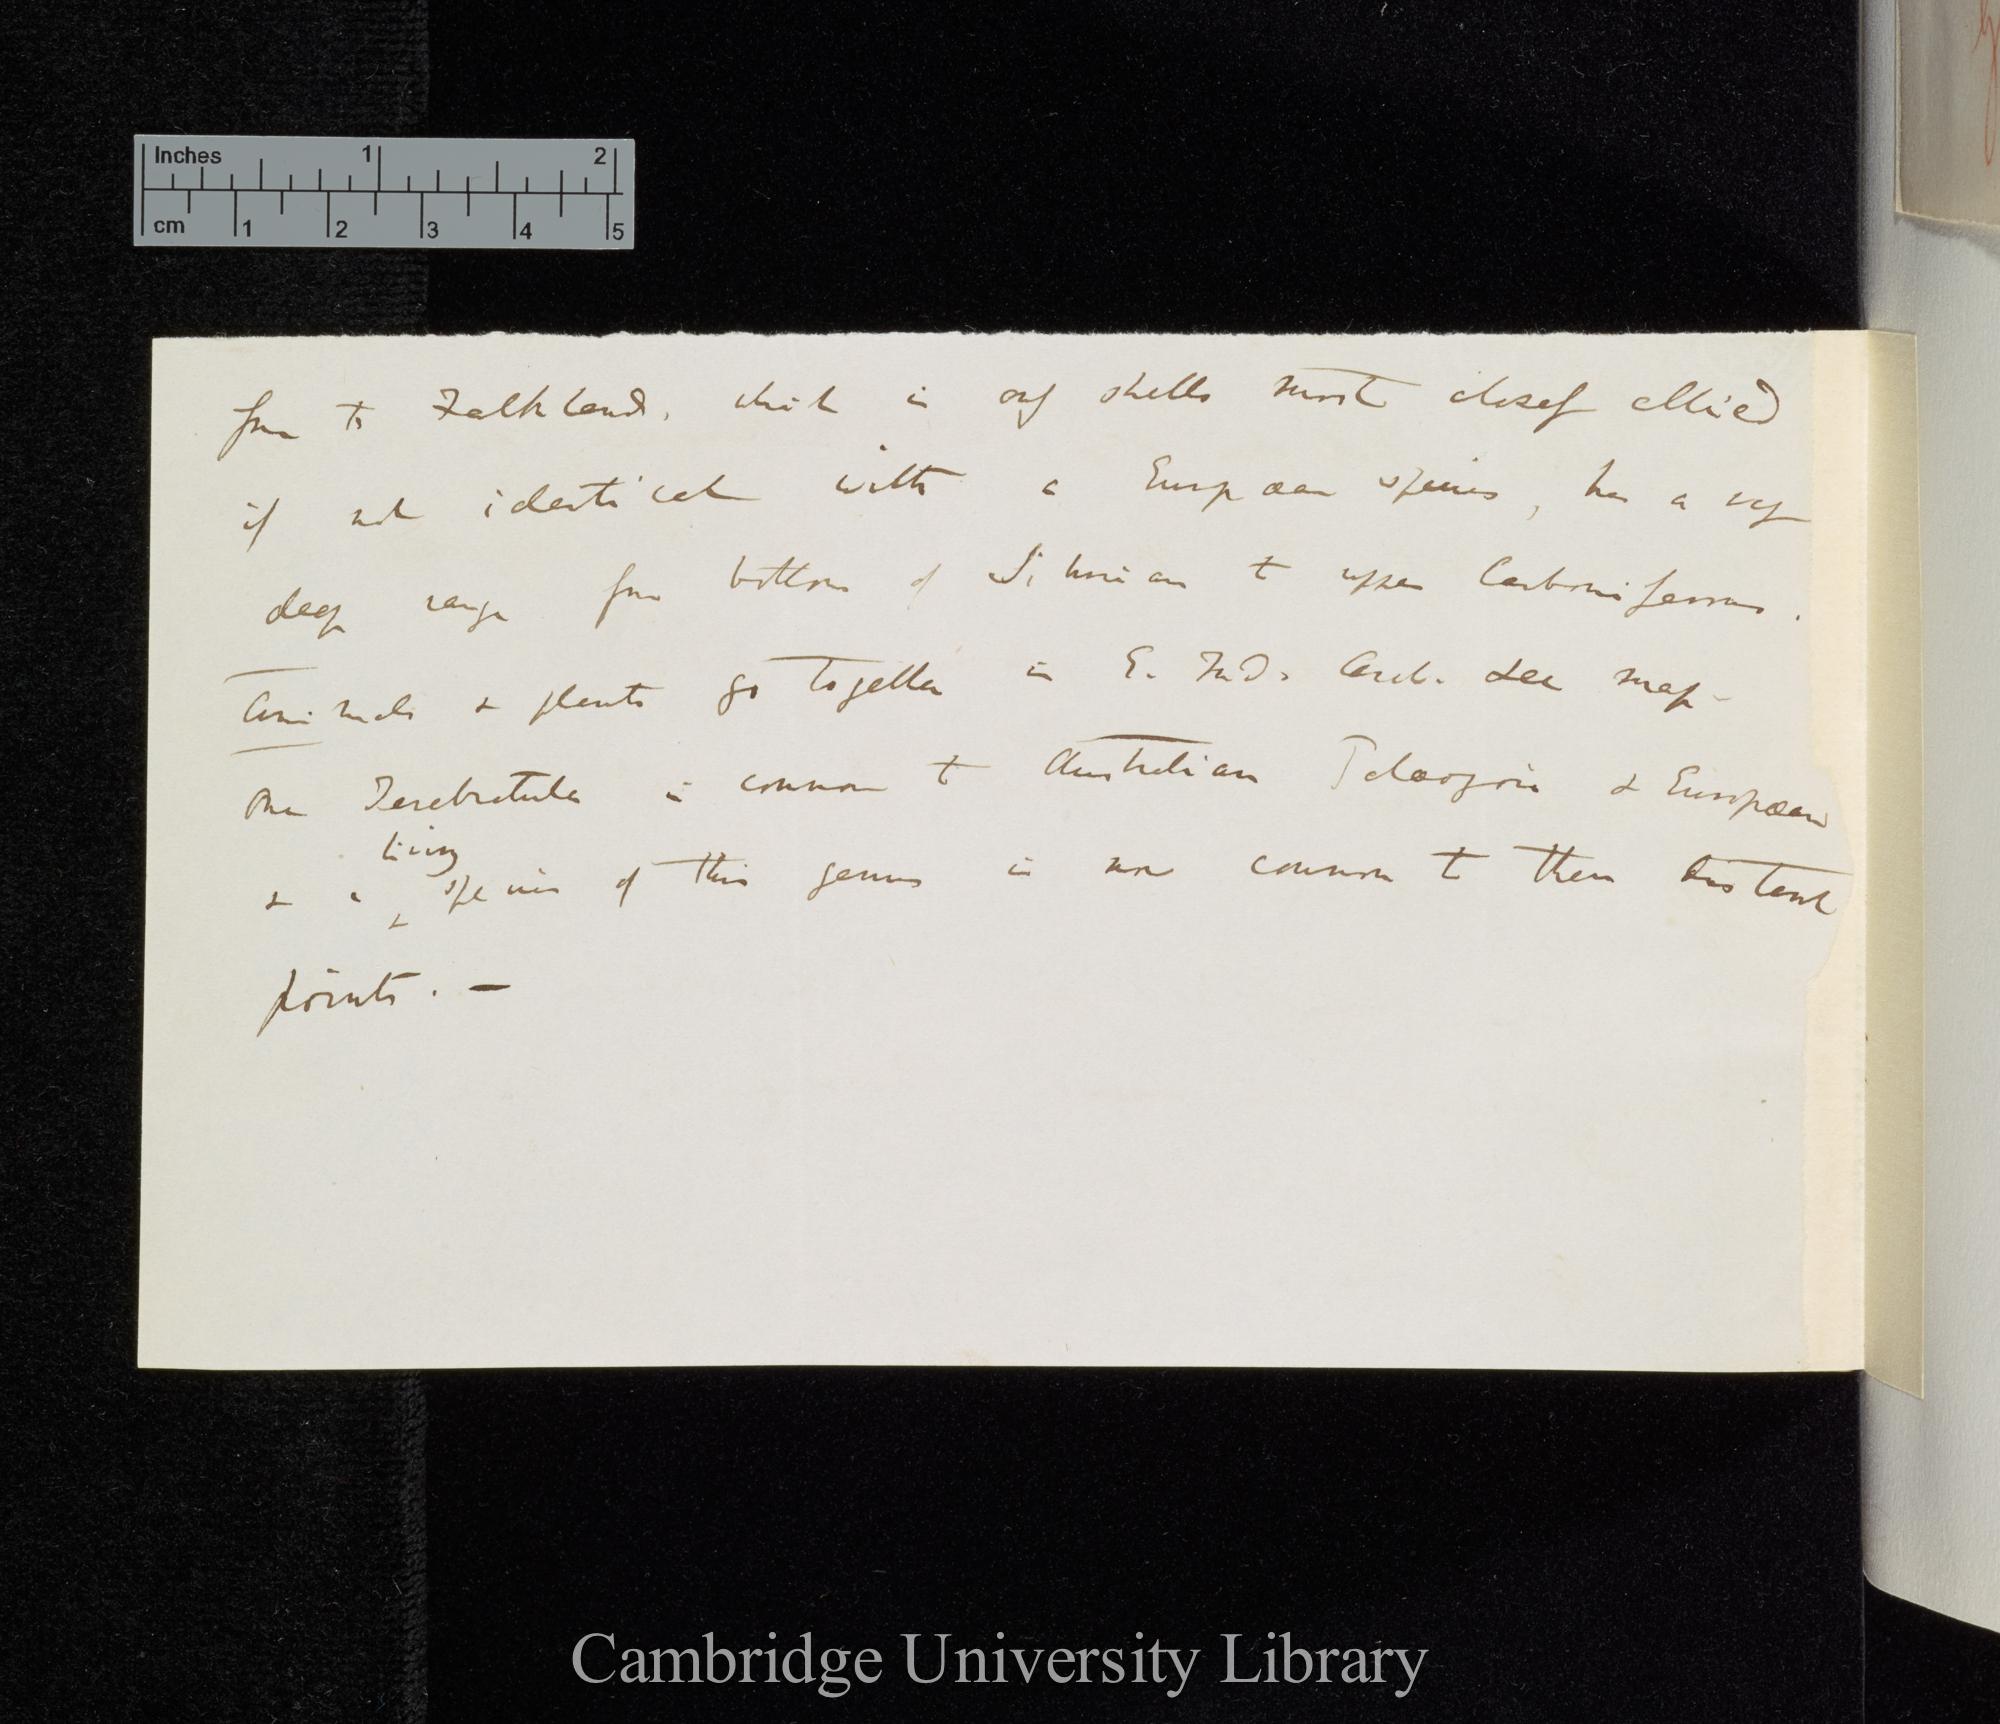 Inches 1 2
cm 1 2 3 4 5
from the Falklands, which is only shells most closely allied
if not identical with a European species, has a very
deep range from bottom of Silurian to upper Carboniferous.
Animals & plants go together in E. Ind. Arch. see map—
One Terebratula is common to Australian Palæozoic & European
living
& a species of this genus is now common to these distant
points. —
Cambridge University Library